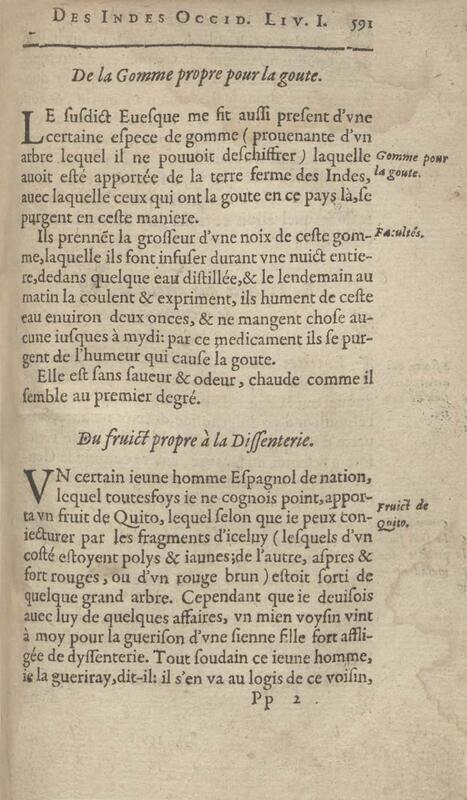 DES INDES OCCID. LIV. I. 591
De la Gomme propre pour la goute.
LE suſdict Eueſque me fit auſſi preſent d'vne
certaine eſpece de gomme (prouenante d'vn
arbre lequel il ne pouuoit deſchiffrer) laquelle
Gomme pour
la goute.
auoit eſté apportée de la terre ferme des Indes,
auec laquelle ceux qui ont la goute en ce pays là, ſe
purgent en ceſte maniere.
Ils prennẽt la groſſeur d'vne noix de ceſte gom-
Facultés.
me, laquelle ils font infuſer durant vne nuict entie-
re, dedans quelque eau diſtillée, & le lendemain au
matin la coulent & expriment, ils hument de ceſte
eau enuiron deux onces, & ne mangent choſe au-
cune iuſques à mydi: par ce medicament ils ſe pur-
gent de l'humeur qui cauſe la goute.
Elle eſt ſans ſaueur & odeur, chaude comme il
ſemble au premier degré.
Du fruict propre à la Diſſenterie.
VN certain ieune homme Eſpagnol de nation,
lequel toutesfoys ie ne cognois point, appor-
ta vn fruit de Quito, lequel ſelon que ie peux con-
Fruict de
Quito.
iecturer par les fragments d'iceluy (leſquels d'vn
coſté eſtoyent polys & iaunes; de l'autre, aſpres &
fort rouges, ou d'vn rouge brun) eſtoit ſorti de
quelque grand arbre. Cependant que ie deuiſois
auec luy de quelques affaires, vn mien voyſin vint
à moy pour la gueriſon d'vne ſienne fille fort affli-
gée de dyſſenterie. Tout ſoudain ce ieune homme,
ie la gueriray, dit-il: il s'en va au logis de ce voiſin,
Pp 2